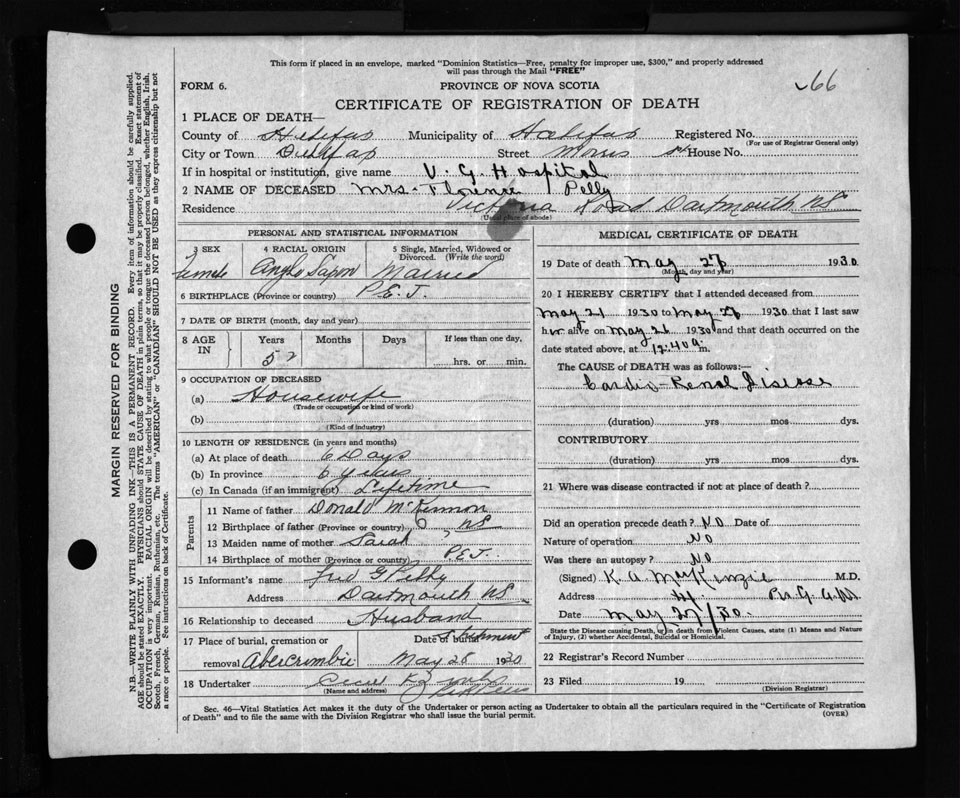 This form if placed in an envelope, marked "Dominion Statistics—Free, penalty for improper use, $300," and properly addressed
will pass through the Mail "FREE"
66
FORM 6.
PROVINCE OF NOVA SCOTIA
CERTIFICATE OF REGISTRATION OF DEATH
1 PLACE OF DEATH—
County of Halifax Municipality of Halifax Registered No.
(For use of Registrar General only)
City or Town Street Morris St House No.
If in hospital or institution, give name V. G. Hospital
2 NAME OF DECEASED Mrs. Florence Pelly
Residence Victoria Road Dartmouth NS
(Usual place of abode)
PERSONAL AND STATISTICAL INFORMATION
3 SEX 4 RACIAL ORIGIN 5 Single, Married, Widowed or Divorced. (Write the word)
Female Anglo Saxon Married
6 BIRTHPLACE (Province or country) P.E.I.
7 DATE OF BIRTH (month, day and year)
8 AGE IN Years Months Days If less than one day,
52 hrs. or min.
9 OCCUPATION OF DECEASED
(a) Housewife
(Trade or occupation or kind of work)
(b)
(Kind of industry)
10 LENGTH OF RESIDENCE (in years and months)
(a) At place of death 6 Days
(b) In province 6 years
(c) In Canada (if an immigrant) Lifetime
Parents
11 Name of father Donald McKinnon
12 Birthplace of father (Province or country) NS
13 Maiden name of mother Sarah ?
14 Birthplace of mother (Province or country) P.E.I.
15 Informant's name Fred G Pelly
Address Dartmouth NS
16 Relationship to deceased Husband
17 Place of burial, cremation or Date of burial
removal Abercrombie May 28 1930
18 Undertaker Cecil
(Name and address)
MEDICAL CERTIFICATE OF DEATH
19 Date of death May 27 1930
(Month, day and year)
20 I HEREBY CERTIFY that I attended deceased from
May 21 1930 to May 26 1930 that I last saw
her alive on May 26 1930 and that death occurred on
the date stated above, at 12:40 a m.
The CAUSE of DEATH was as follows:—
Cardio-Renal Disease
(duration) yrs mos dys.
CONTRIBUTORY
(duration) yrs mos dys.
21 Where was disease contracted if not at place of death?
Did an operation precede death? No Date of
Nature of operation No
Was there an autopsy? No
(Signed) K. A. MacKenzie M.D.
Address
Date May 27/30.
State the Disease causing Death, or in death from Violent Causes, state (1) Means and Nature
of Injury, (2) whether Accidental, Suicidal or Homicidal.
22 Registrar's Record Number
23 Filed 19
(Division Registrar)
Sec. 46—Vital Statistics Act makes it the duty of the Undertaker or person acting as Undertaker to obtain all the particulars required in the "Certificate of Registration
of Death" and to file the same with the Division Registrar who shall issue the burial permit.
(OVER)
MARGIN RESERVED FOR BINDING
N.B.—WRITE PLAINLY WITH UNFADING INK—THIS IS A PERMANENT RECORD. Every item of information should be carefully supplied.
AGE should be stated EXACTLY. PHYSICIANS should STATE CAUSE OF DEATH in plain terms, so that it may be properly classified. Exact statement of
OCCUPATION is very important. RACIAL ORIGIN will be described by stating to what people or tongue the deceased person belonged, whether English, Irish,
Scotch, French, German, Russian, Ruthenian, etc. The terms "AMERICAN" or "CANADIAN" SHOULD NOT BE USED as they express citizenship but not
a race or people. See instructions on back of Certificate.